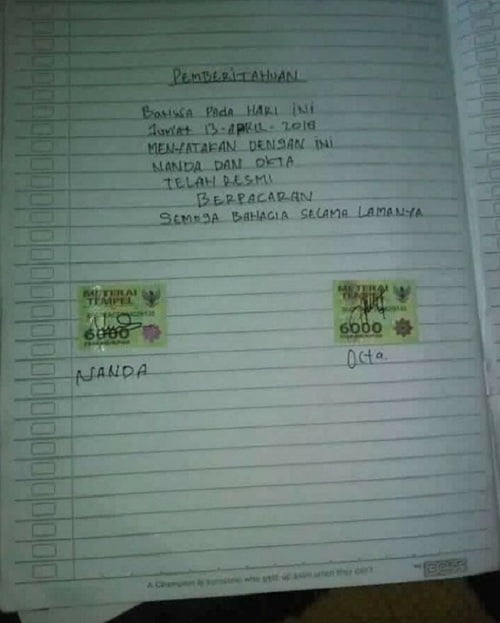 PEMBERITAHUAN
BAHWA PADA HARI INI
JUM'AT 13-APRIL-2018
MENYATAKAN DENGAN INI
NANDA DAN OKTA
TELAH RESMI
BERPACARAN
SEMOGA BAHAGIA SELAMA LAMANYA
METERAI
TEMPEL
6000
NANDA
METERAI
TEMPEL
6000
Octa
A Champion is someone who gets up even when they can't